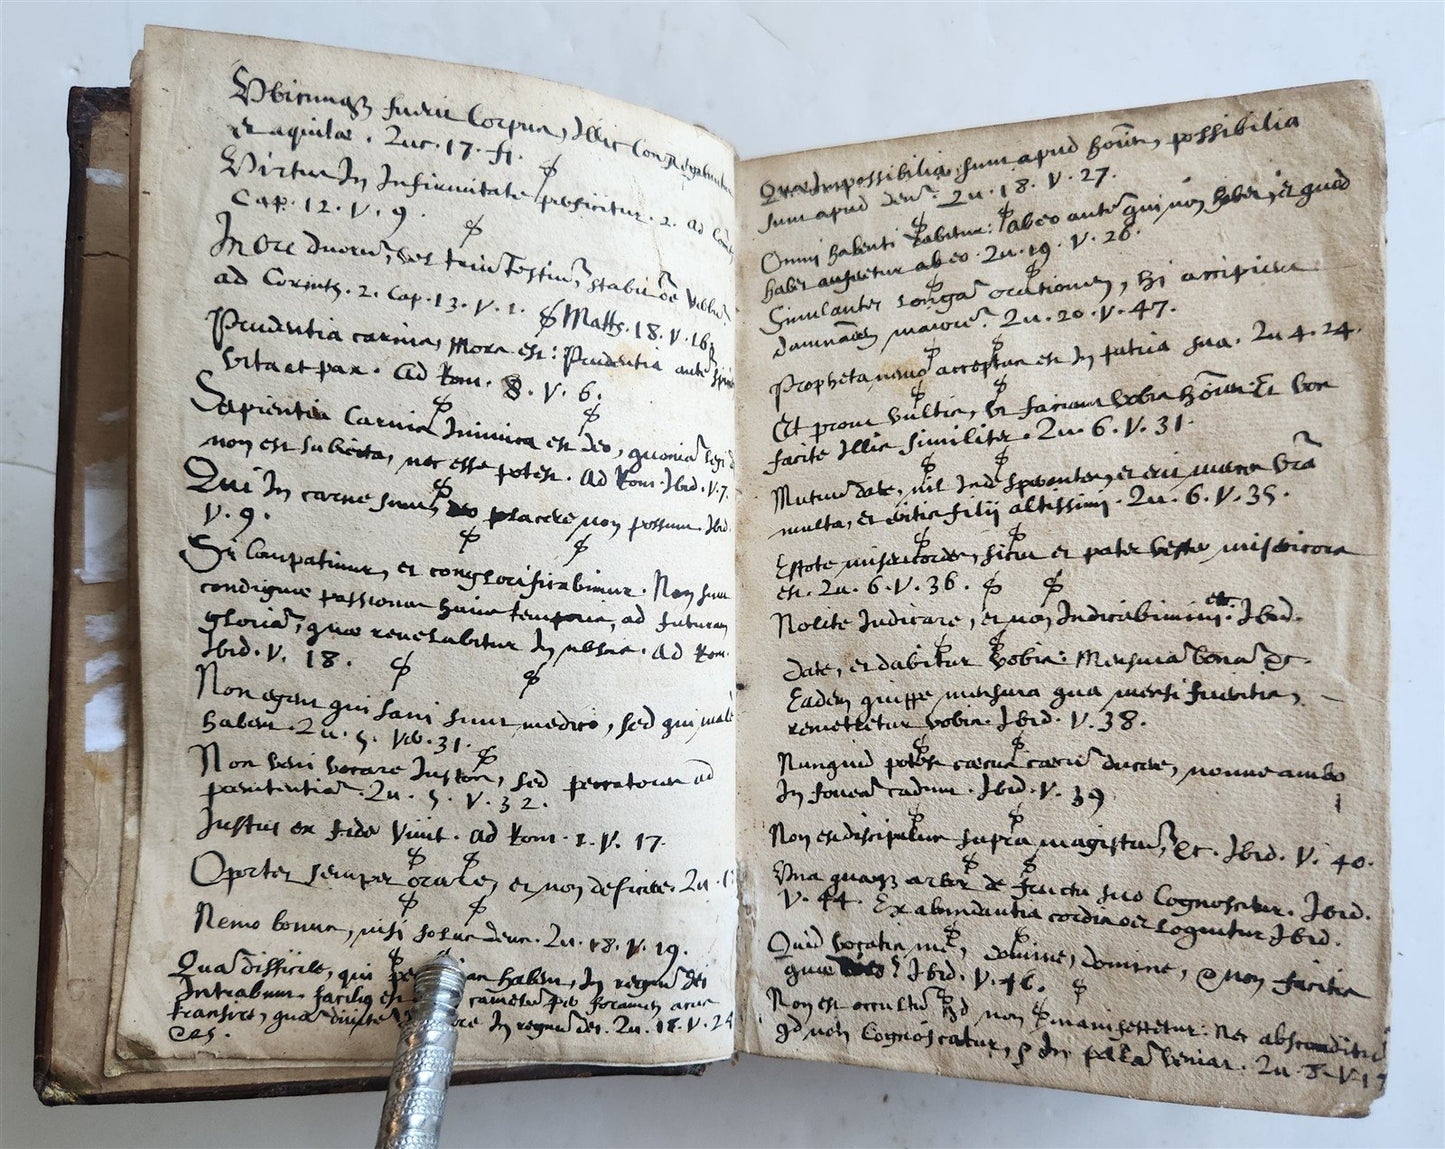 Vbicunqz fuerit Corpus, Illic Congregabuntur
et aquilae. Luc. 17. fi.
Virtus In Infirmitate perficitur. 2. ad Corint
Cap. 12. V. 9.
In Ore duorū, vel triū Testiū, stabit oē Verbū.
ad Corinth. 2. Cap. 13. V. 1. Matth. 18. V. 16.
Prudentia carnis, Mors est: Prudentia autē spiri
Vita et pax. ad Rom. 8. V. 6.
Sapientia Carnis Inimica est deo, quoniā legi d
non est subiecta, nec esse potest. ad Rom. Ibid. V. 7.
Qui In carne sunt, deo placere non possunt. Ibid.
V. 9.
Si Compatimur, et conglorificabimur. Non sunt
condignae passiones huius temporis, ad futuram
gloriā, quae reuelabitur In nobis. ad Rom.
Ibid. V. 18.
Non egent qui sani sunt medico, sed qui male
habent. Lu. 5. Ver. 31.
Non veni vocare Iustos, sed peccatores ad
paenitentiā. Lu. 5. V. 32.
Iustus ex fide Viuit. ad Rom. 1. V. 17.
Oportet semper orare, et non deficere. Lu. 1
Nemo bonus, nisi solus deus. Lu. 18. V. 19.
Quā difficile, qui habent, In regnū dei
Intrabunt. facilius est camelū per foramen acus
transire, quā diuitē In regnū dei. Lu. 18. V. 24
25.
Quae Impossibilia sunt apud hoīes, possibilia
sunt apud deū. Lu. 18. V. 27.
Omni habenti dabitur: ab eo autē qui non habet, et quod
habet auferetur ab eo. Lu. 19. V. 26.
Simulantes longā orationem, Hi accipient
damnāoem maiorē. Lu. 20. V. 47.
Propheta nemo acceptus est In patria sua. Lu 4. 24.
Et prout vultis, vt faciant vobis hoīes Et vos
facite Illis similiter. Lu. 6. V. 31.
Mutuū date, nil Inde sperantes, et erit merces vrā
multa, et eritis filij altissimi. Lu. 6. V. 35.
Estote misericordes, sicut et pater vester misericors
est. Lu. 6. V. 36.
Nolite Iudicare, et non Iudicabimini. etc. Ibid.
Date, et dabitur vobis: Mensurā bonā &c.
Eadem quippe mensura qua mensi fueritis,
remetietur vobis. Ibid. V. 38.
Nunquid potest caecus caecū ducere, nonne ambo
In foueā cadunt. Ibid. V. 39
Non est discipulus supra magistrū, &c. Ibid. V. 40.
Vna quaeqz arbor de fructu suo Cognoscitur. Ibid.
V. 44. Ex abundantia cordis os loquitur Ibid.
Quid vocatis me, domine, domine, & non facitis
quae Ibid. V. 46.
Non est occultū qd non manifestetur: Nec absconditū
qd non Cognoscatur, & In palā veniat. Lu 8. V. 17